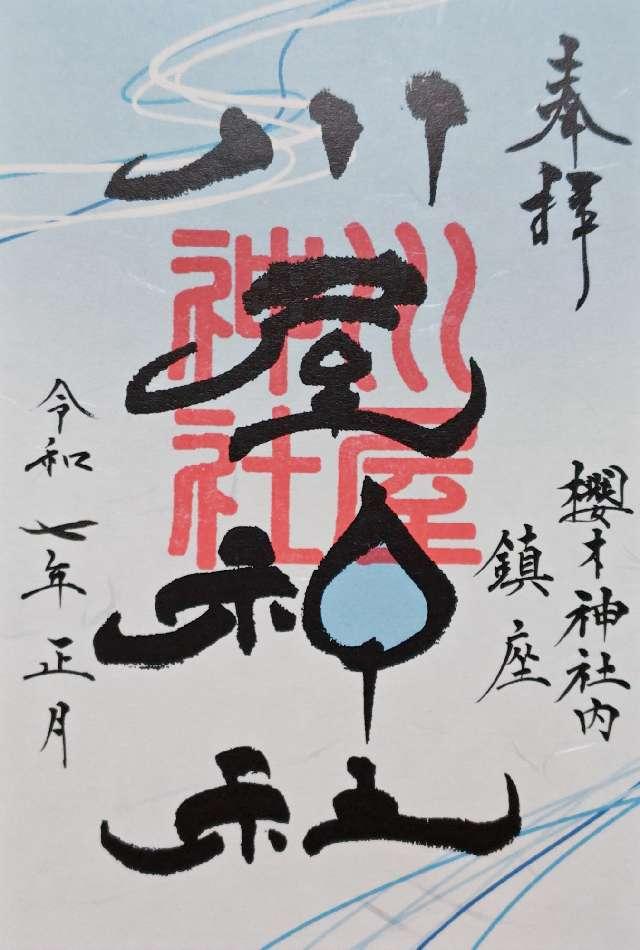 奉拝
櫻木神社内
鎮座
川屋神社
川屋神社
令和七年正月